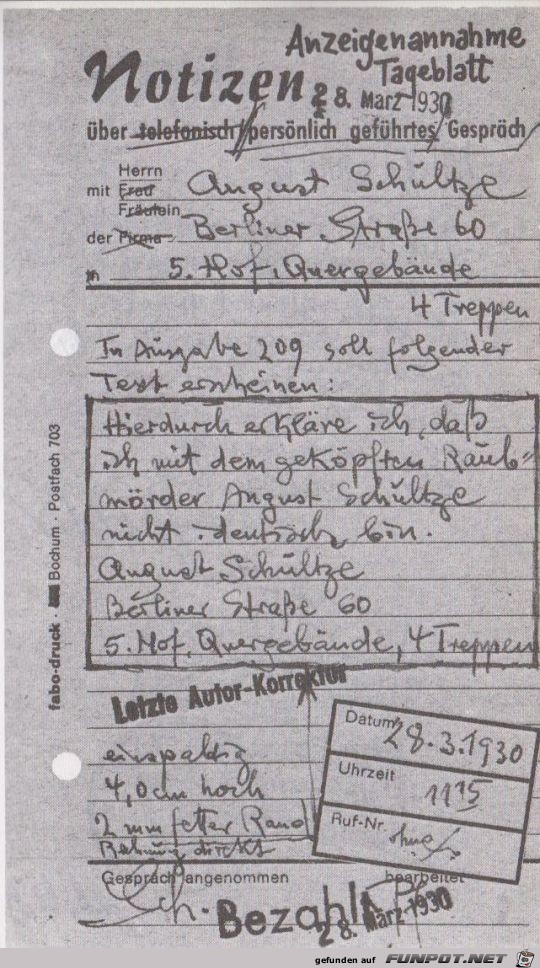 Anzeigenannahme
Tageblatt
Notizen
28. März 1930
über telefonisch/persönlich geführtes Gespräch
mit Herrn Frau Fräulein August Schültze
der Firma Berliner Straße 60
in 5. Hof, Quergebäude
4 Treppen
In Ausgabe 209 soll folgender
Text erscheinen:
Hierdurch erkläre ich, daß
ich mit dem geköpften Raub-
mörder August Schültze
nicht identisch bin.
August Schültze
Berliner Straße 60
5. Hof, Quergebäude, 4 Treppen
Letzte Autor-Korrektur
einspaltig
4,0 cm hoch
2 mm fetter Rand
Rechnung direkt
Datum 28.3.1930
Uhrzeit 11 15
Ruf-Nr. ohne
Gespräch angenommen bearbeitet
Sch. Bezahlt
28. März 1930
fabo-druck · Bochum · Postfach 703
gefunden auf FUNPOT.NET